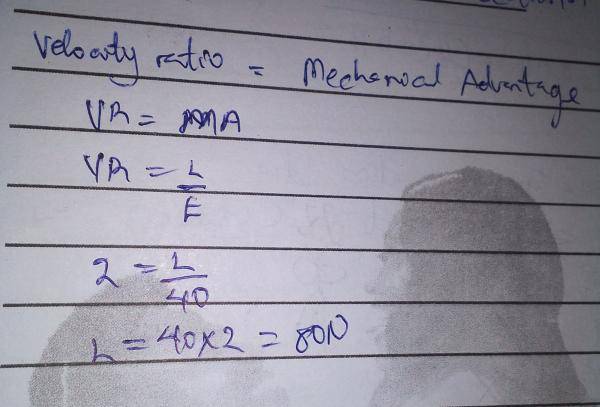 Velocity ratio = Mechanical Advantage
VR = MA
VR = L/E
2 = L/40
L = 40×2 = 80N